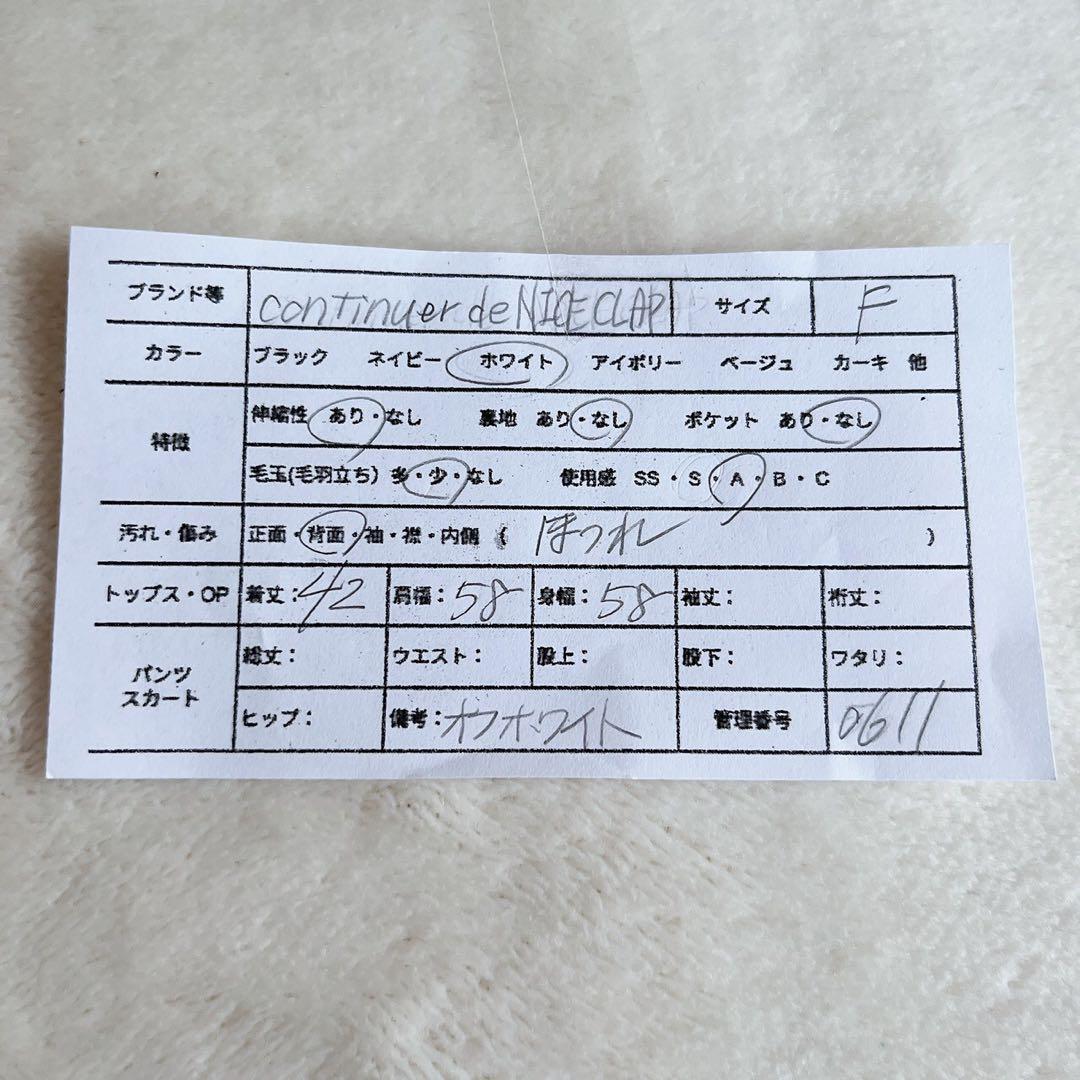 ブランド等 continuer de NICE CLAP サイズ F
カラー ブラック ネイビー ホワイト アイボリー ベージュ カーキ 他
特徴 伸縮性 あり・なし 裏地 あり・なし ポケット あり・なし
毛玉(毛羽立ち) 多・少・なし 使用感 SS・S・A・B・C
汚れ・傷み 正面・背面・袖・襟・内側 ( ほつれ )
トップス・OP 着丈:42 肩幅:58 身幅:58 袖丈: 裄丈:
パンツ スカート 総丈: ウエスト: 股上: 股下: ワタリ:
ヒップ: 備考:オフホワイト 管理番号 0611